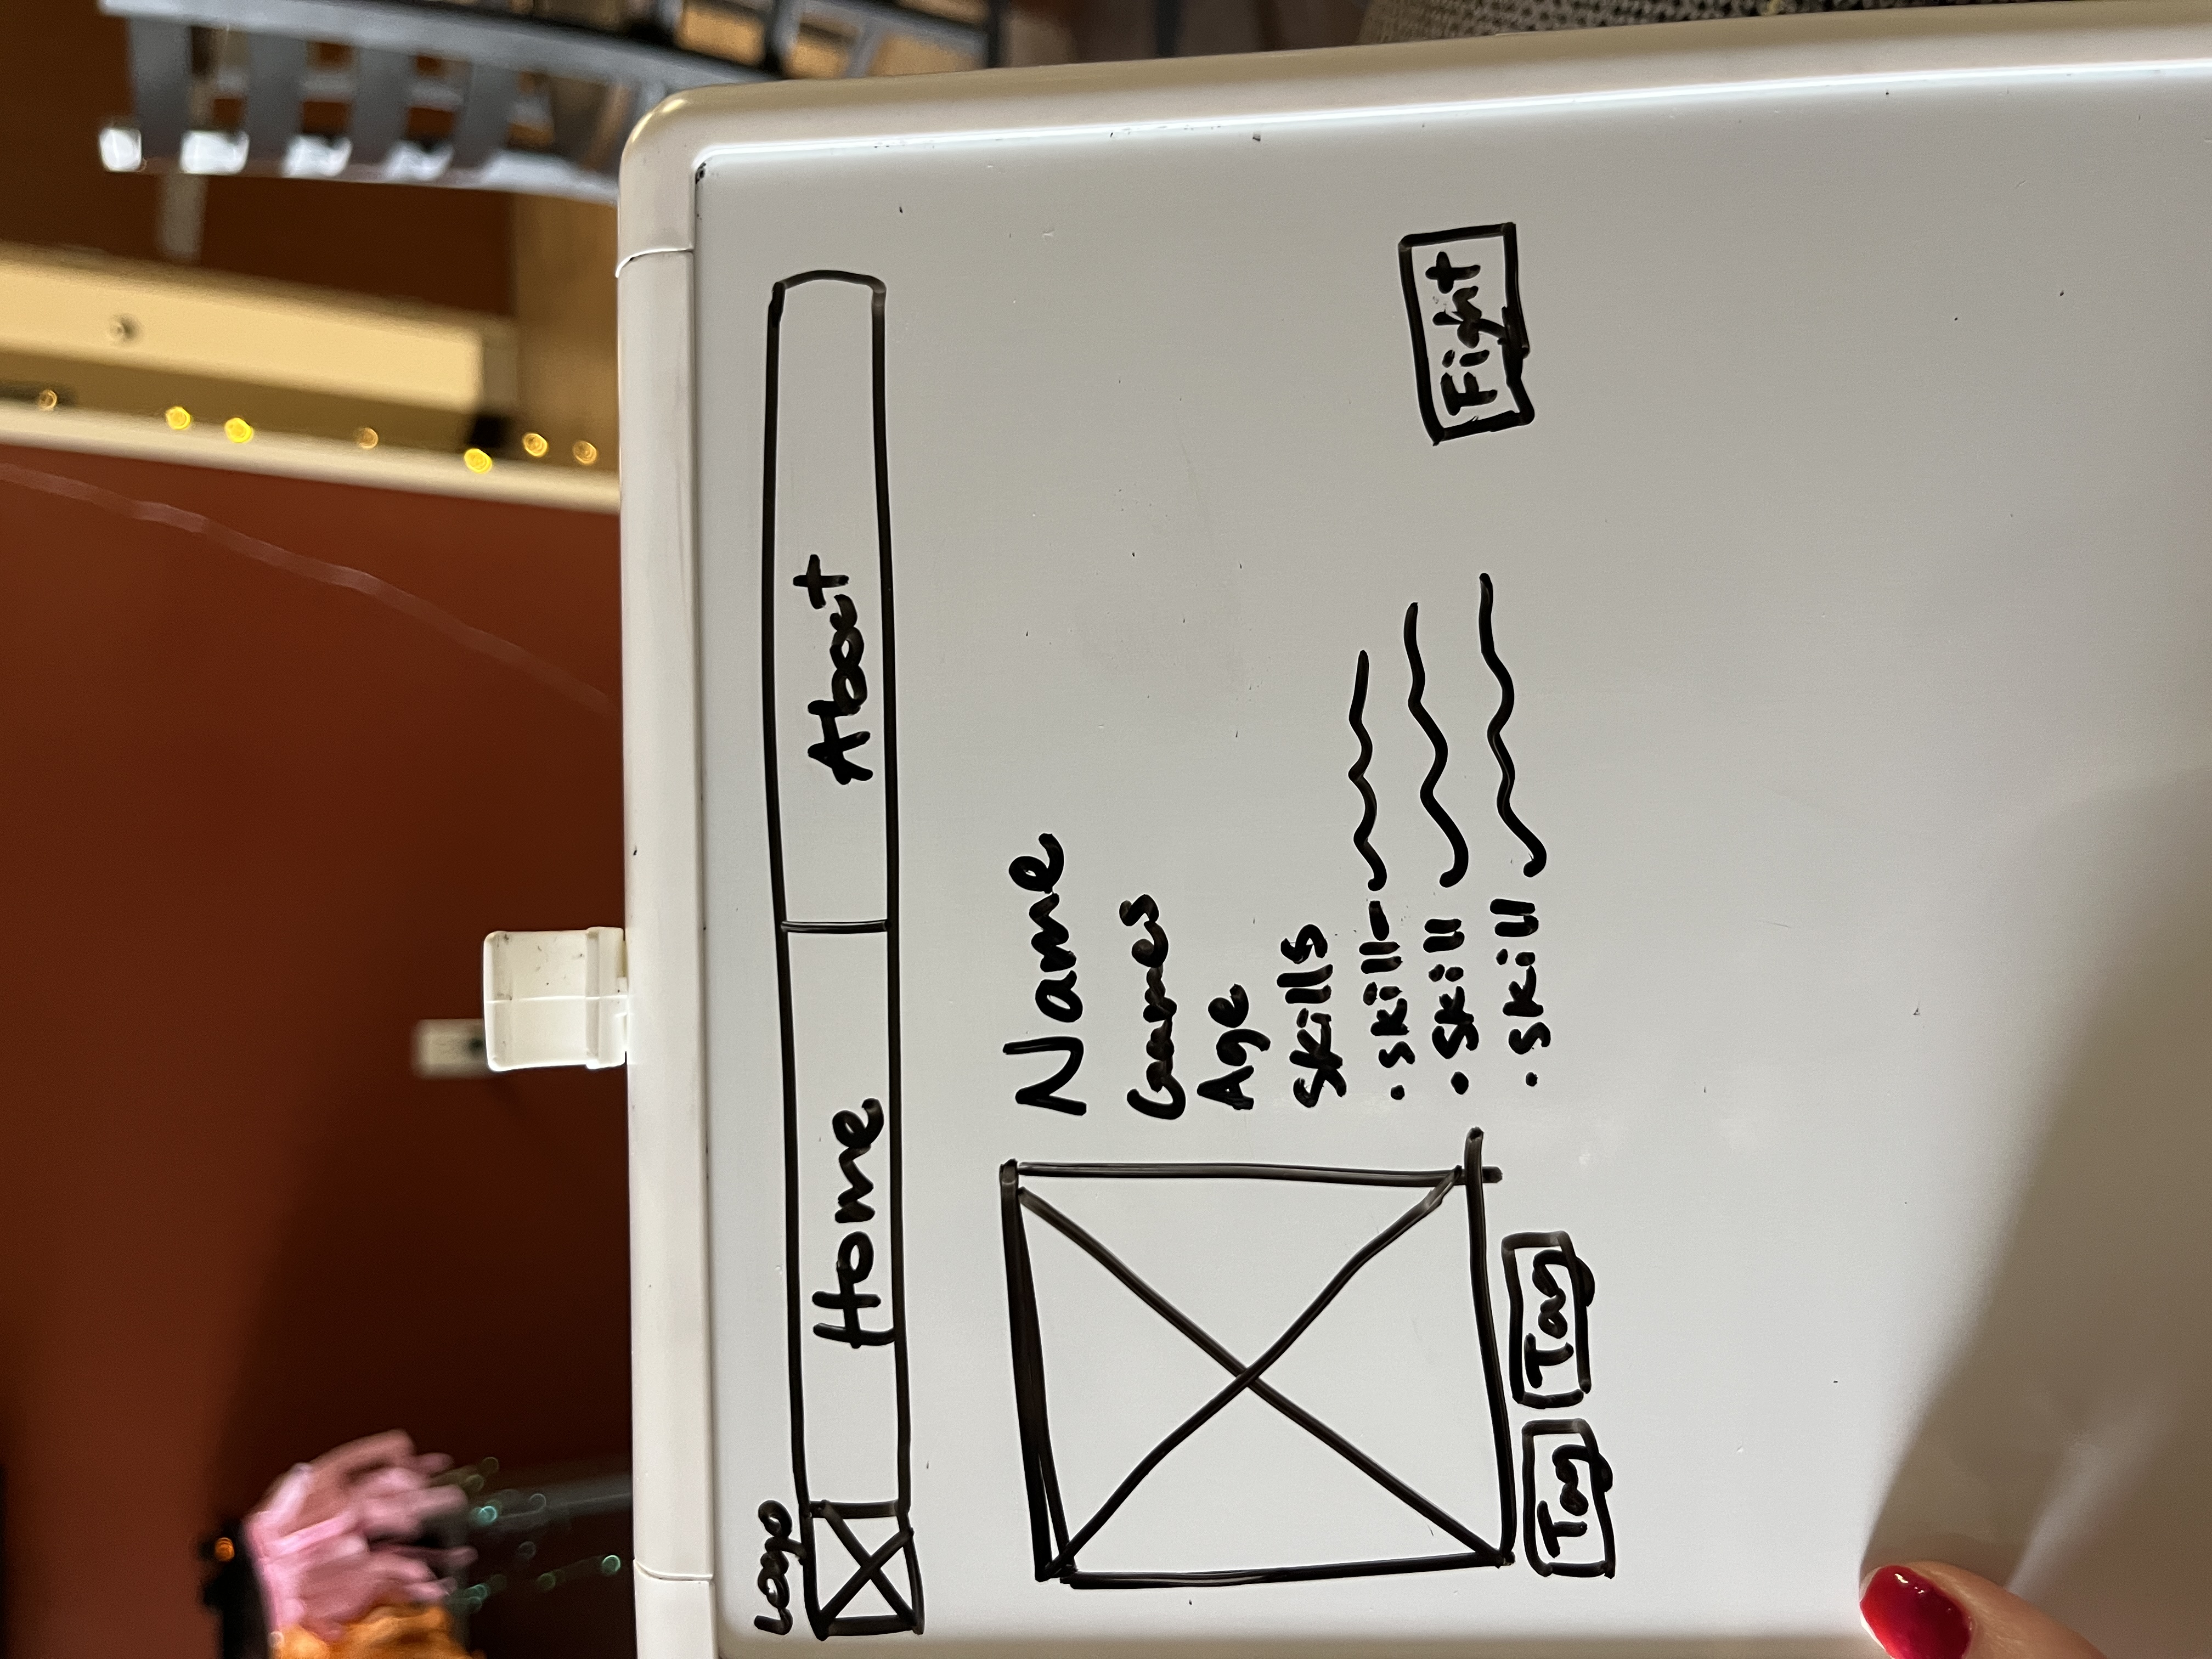 Logo
Home About
Name
Games
Age
Skills
• skill-
• skill
• skill
Fight
Tag Tag